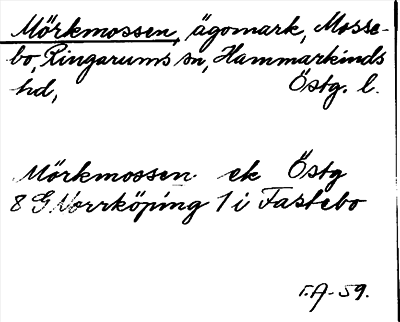 Mörkmossen, ägomark, Mosse-
bo, Ringarums sn, Hammarkinds
hd, Östg. l.
Mörkmossen ek Östg
8 G Norrköping 1 i Fastebo
T.A-59.